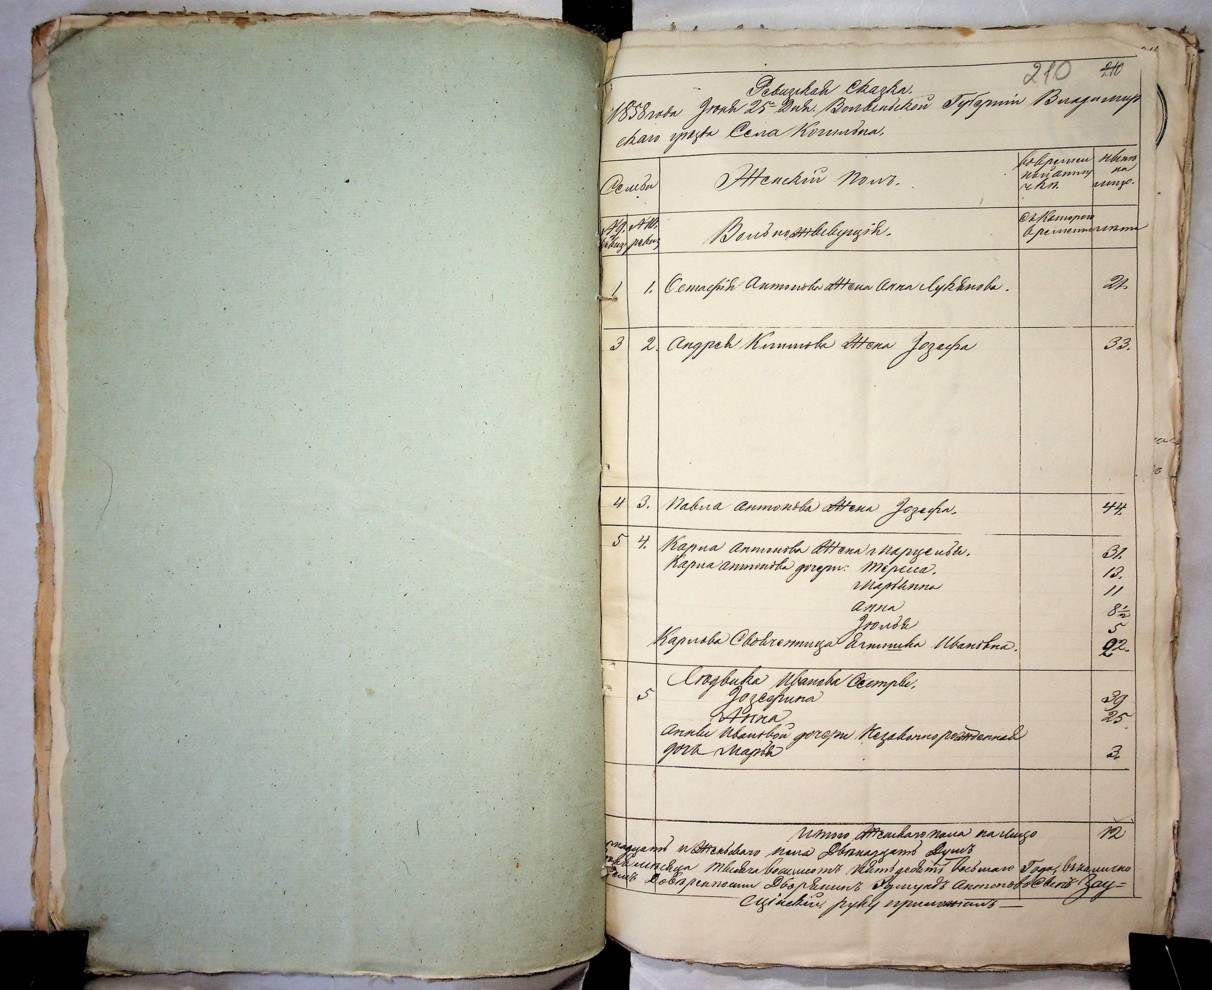 210 210
Ревизская Сказка.
1858 года Июня 25 дня, Волынской Губернии Владимир
скаго уезда Села
Семьи Женский Полъ. во времен ной отлу чкѣ. ныне на лицо.
№ 9. ревиз №10. ревиз Вольноживущiе. съ которого времени лѣта
1 1. Остафiя Антонова Жена Анна Лукянова. 21.
3 2. Андрея Климова Жена Iозефа 33.
4 3. Павла Антонова Жена Iозефа. 44.
5 4. Карла Антонова Жена Марцеля. 31.
Карла Антонова дочери: Тереса. 13.
Марьянна 11
Анна 8½
Юлья 5
Карлова Ивановна.
5 Людвика Иванова Сестры.
Iозефина 39
Анна 25
Анны Ивановой дочери Незаконнорожденная
дочь Марья 3
Итого Женскаго пола на Лицо 12
и Женскаго пола Двѣнадцать Душъ
тысяча восемьсотъ пятьдесятъ восьмаго Года,
Довѣренности Дворянинъ Антоновъ Сынъ
руку приложилъ